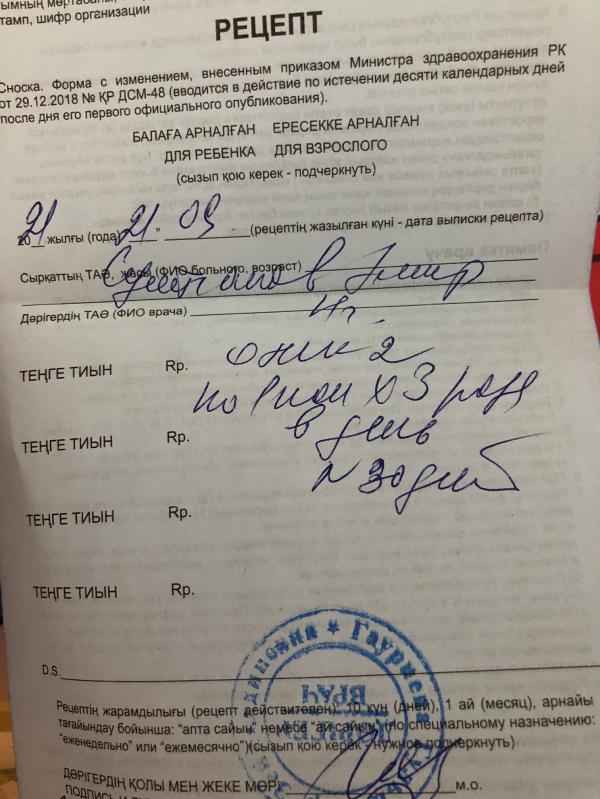 тамп, шифр организации
РЕЦЕПТ
Сноска. Форма с изменением, внесенным приказом Министра здравоохранения РК
от 29.12.2018 № ҚР ДСМ-48 (вводится в действие по истечении десяти календарных дней
после дня его первого официального опубликования).
БАЛАҒА АРНАЛҒАН ЕРЕСЕККЕ АРНАЛҒАН
ДЛЯ РЕБЕНКА ДЛЯ ВЗРОСЛОГО
(сызып қою керек - подчеркнуть)
2021 жылғы (года) "21" 09 (рецептің жазылған күні - дата выписки рецепта)
Сырқаттың ТАӘ, жасы (ФИО больного, возраст)
Дәрігердің ТАӘ (ФИО врача)
ТЕҢГЕ ТИЫН Rp.
по 3 раза
ТЕҢГЕ ТИЫН Rp.
в день
N 30 дней
ТЕҢГЕ ТИЫН Rp.
ТЕҢГЕ ТИЫН Rp.
D.S.
Рецептің жарамдылығы (рецепт действителен), 10 күн (дней), 1 ай (месяц), арнайы
тағайындау бойынша: "апта сайын" немесе "ай сайын" (по специальному назначению:
"еженедельно" или "ежемесячно")(сызып қою керек - нужное подчеркнуть)
ДӘРІГЕРДІҢ ҚОЛЫ МЕН ЖЕКЕ МӨРІ м.о.
ВРАЧ